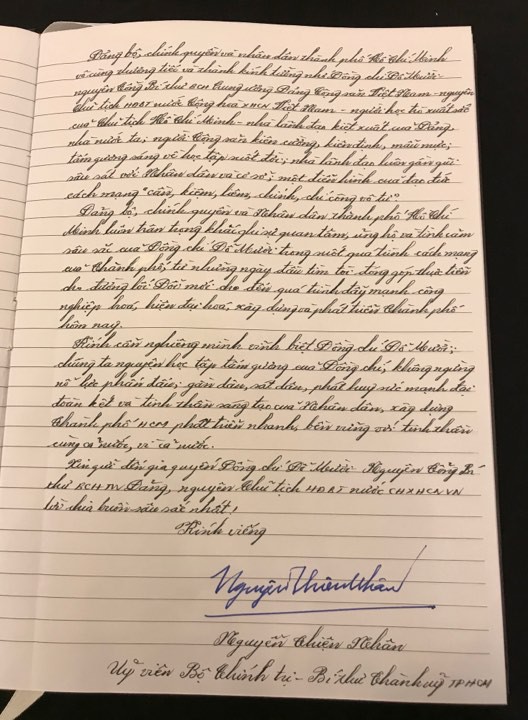 Đảng bộ, chính quyền và nhân dân thành phố Hồ Chí Minh
vô cùng thương tiếc và thành kính tưởng nhớ Đồng chí Đỗ Mười -
nguyên Tổng Bí thư BCH Trung ương Đảng Cộng sản Việt Nam - nguyên
Chủ tịch HĐBT nước Cộng hòa XHCN Việt Nam - người học trò xuất sắc
của Chủ tịch Hồ Chí Minh - nhà lãnh đạo kiệt xuất của Đảng,
nhà nước ta; người Cộng sản kiên cường, kiên định, mẫu mực;
tấm gương sáng về học tập suốt đời; nhà lãnh đạo luôn gần gũi
sâu sát với Nhân dân và cơ sở; một điển hình của đạo đức
cách mạng "cần, kiệm, liêm, chính, chí công vô tư".
Đảng bộ, chính quyền và Nhân dân thành phố Hồ Chí
Minh luôn trân trọng khắc ghi sự quan tâm, ủng hộ và tình cảm
sâu sắc của Đồng chí Đỗ Mười trong suốt quá trình cách mạng
của Thành phố, từ những ngày đầu tìm tòi đóng góp thực tiễn
cho đường lối Đổi mới cho đến quá trình đẩy mạnh công
nghiệp hoá, hiện đại hoá, xây dựng và phát triển Thành phố
hôm nay.
Kính cẩn nghiêng mình vĩnh biệt Đồng chí Đỗ Mười;
chúng ta nguyện học tập tấm gương của Đồng chí, không ngừng
nỗ lực phấn đấu; gần dân, sát dân, phát huy sức mạnh đại
đoàn kết và tinh thần sáng tạo của Nhân dân, xây dựng
Thành phố HCM phát triển nhanh, bền vững với tinh thần
cùng cả nước, vì cả nước.
Xin gửi đến gia quyến Đồng chí Đỗ Mười - Nguyên Tổng Bí
thư BCH TW Đảng, nguyên Chủ tịch HĐBT nước CHXHCNVN
lời chia buồn sâu sắc nhất!
Kính viếng
Nguyễn Thiện Nhân
Nguyễn Thiện Nhân
Uỷ viên Bộ Chính trị - Bí thư Thành uỷ TP HCM